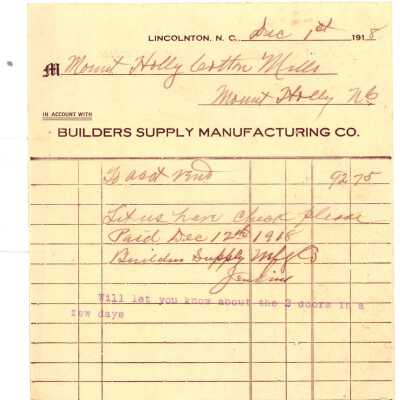 LINCOLNTON, N. C., Dec 1st 1918
M Mount Holly Cotton Mills
Mount Holly NC
IN ACCOUNT WITH
BUILDERS SUPPLY MANUFACTURING CO.
To acct rend 92 75
Let us have check please
Paid Dec 12th 1918
Builders Supply Mfg Co
Jenkins
Will let you know about the 2 doors in a
few days